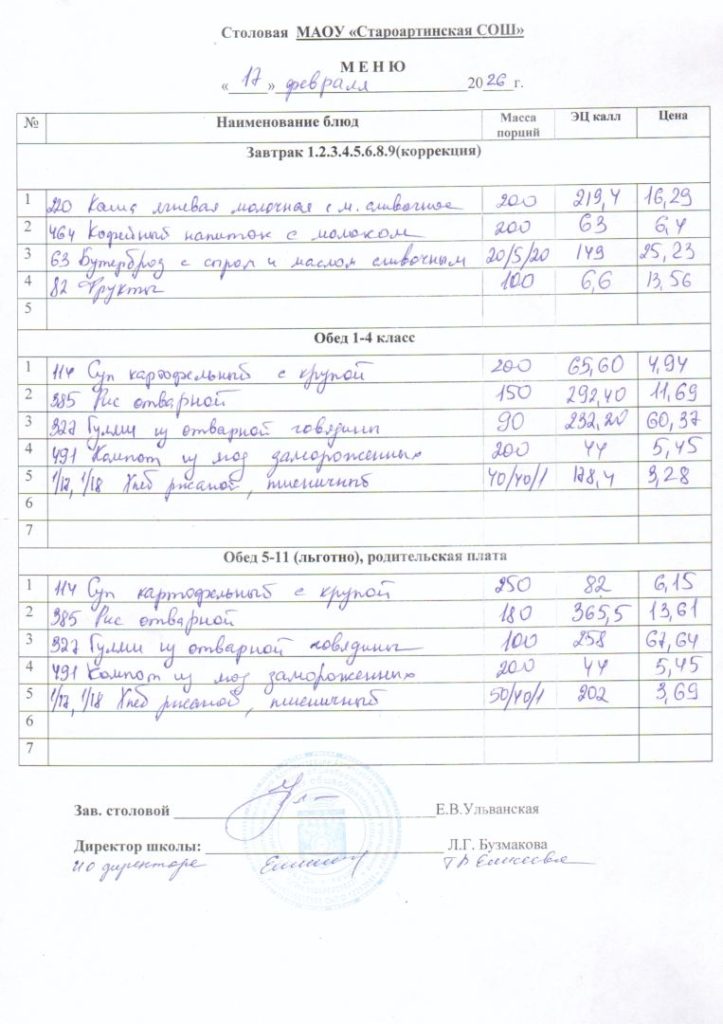 Столовая МАОУ «Староартинская СОШ»
М Е Н Ю
« 17 » февраля 2026 г.
№ Наименование блюд Масса порций ЭЦ калл Цена
Завтрак 1.2.3.4.5.6.8.9(коррекция)
1 220 Каша ячневая молочная с м. сливочное 200 219,4 16,29
2 464 Кофейный напиток с молоком 200 63 6,4
3 63 Бутерброд с сыром и маслом сливочным 20/5/20 149 25,23
4 82 Фрукты 100 6,6 13,56
5
Обед 1-4 класс
1 114 Суп картофельный с крупой 200 65,60 4,94
2 385 Рис отварной 150 292,40 11,69
3 327 Гуляш из отварной говядины 90 232,20 60,37
4 491 Компот из яго замороженных 200 44 5,45
5 1/17, 1/18 Хлеб ржаной, пшеничный 40/40/1 178,4 3,28
6
7
Обед 5-11 (льготно), родительская плата
1 114 Суп картофельный с крупой 250 82 6,15
2 385 Рис отварной 180 365,5 13,61
3 327 Гуляш из отварной говядины 100 258 67,64
4 491 Компот из яго замороженных 200 44 5,45
5 1/17, 1/18 Хлеб ржаной, пшеничный 50/40/1 202 3,69
6
7
Зав. столовой Е.В.Ульванская
Директор школы: Л.Г. Бузмакова
ИО директора Елисеева